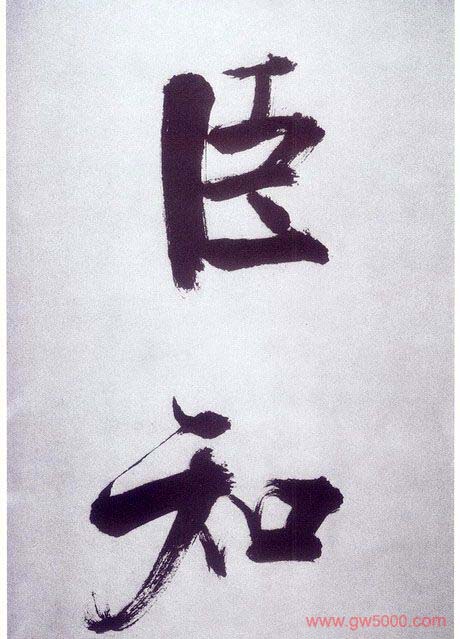 臣
知
www.gw5000.com